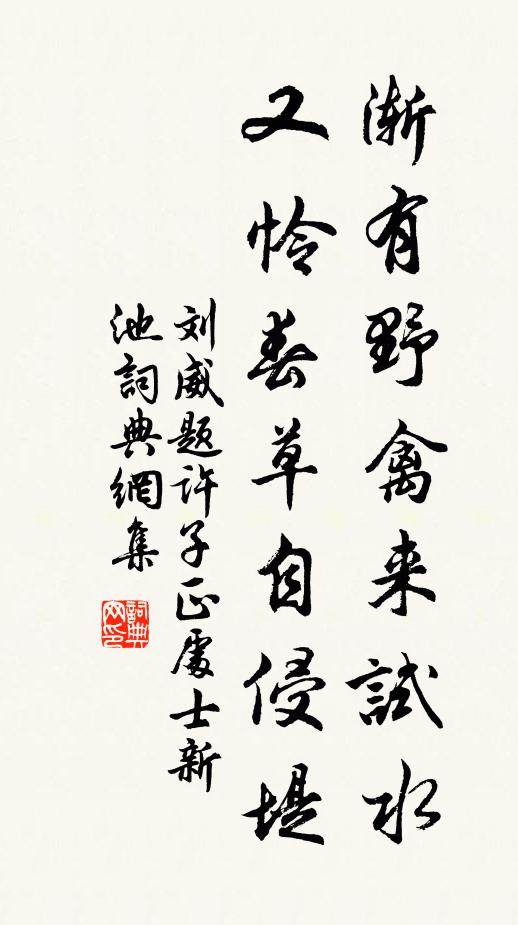 渐有野禽来試水
又怜春草自侵堤
刘威题许子正處士新
池詞典網集
詞典网印